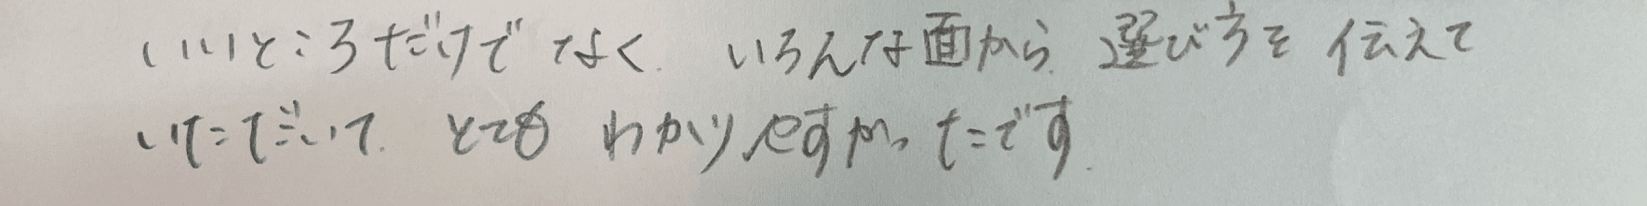 いいところだけでなく、いろんな面から、選び方を伝えて
いただいて、とてもわかりやすかったです。